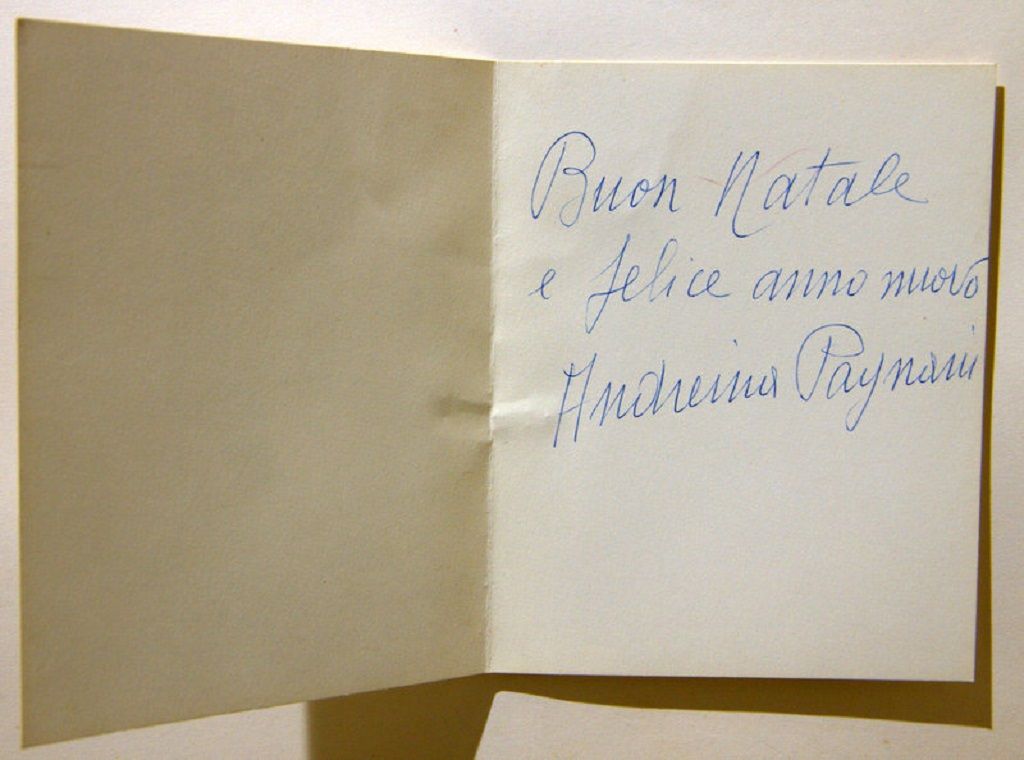 Buon Natale
e felice anno nuovo
Andreina Pagnani